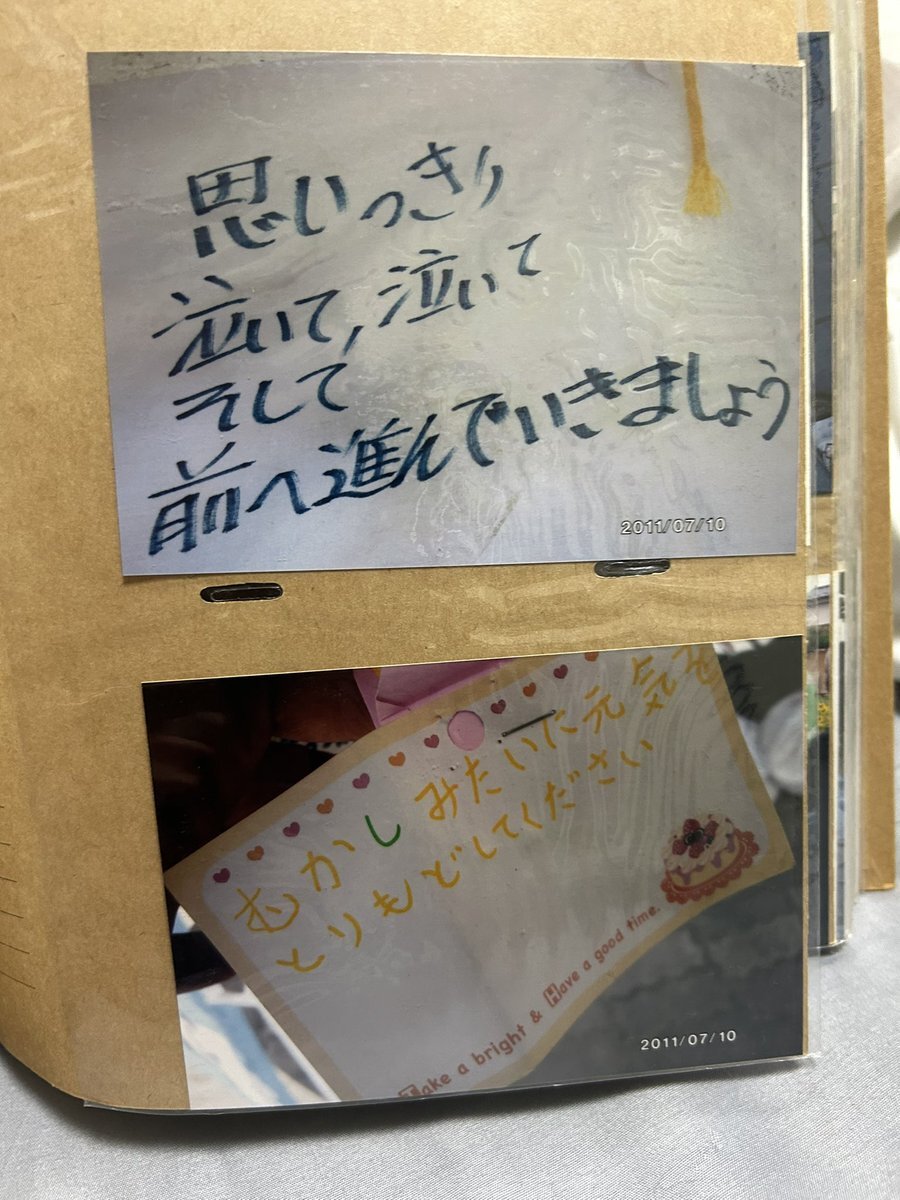 思いっきり
泣いて,泣いて
そして
前へ進んでいきましょう
2011/07/10
むかしみたいに元気を
とりもどしてください
Make a bright & Have a good time.
2011/07/10